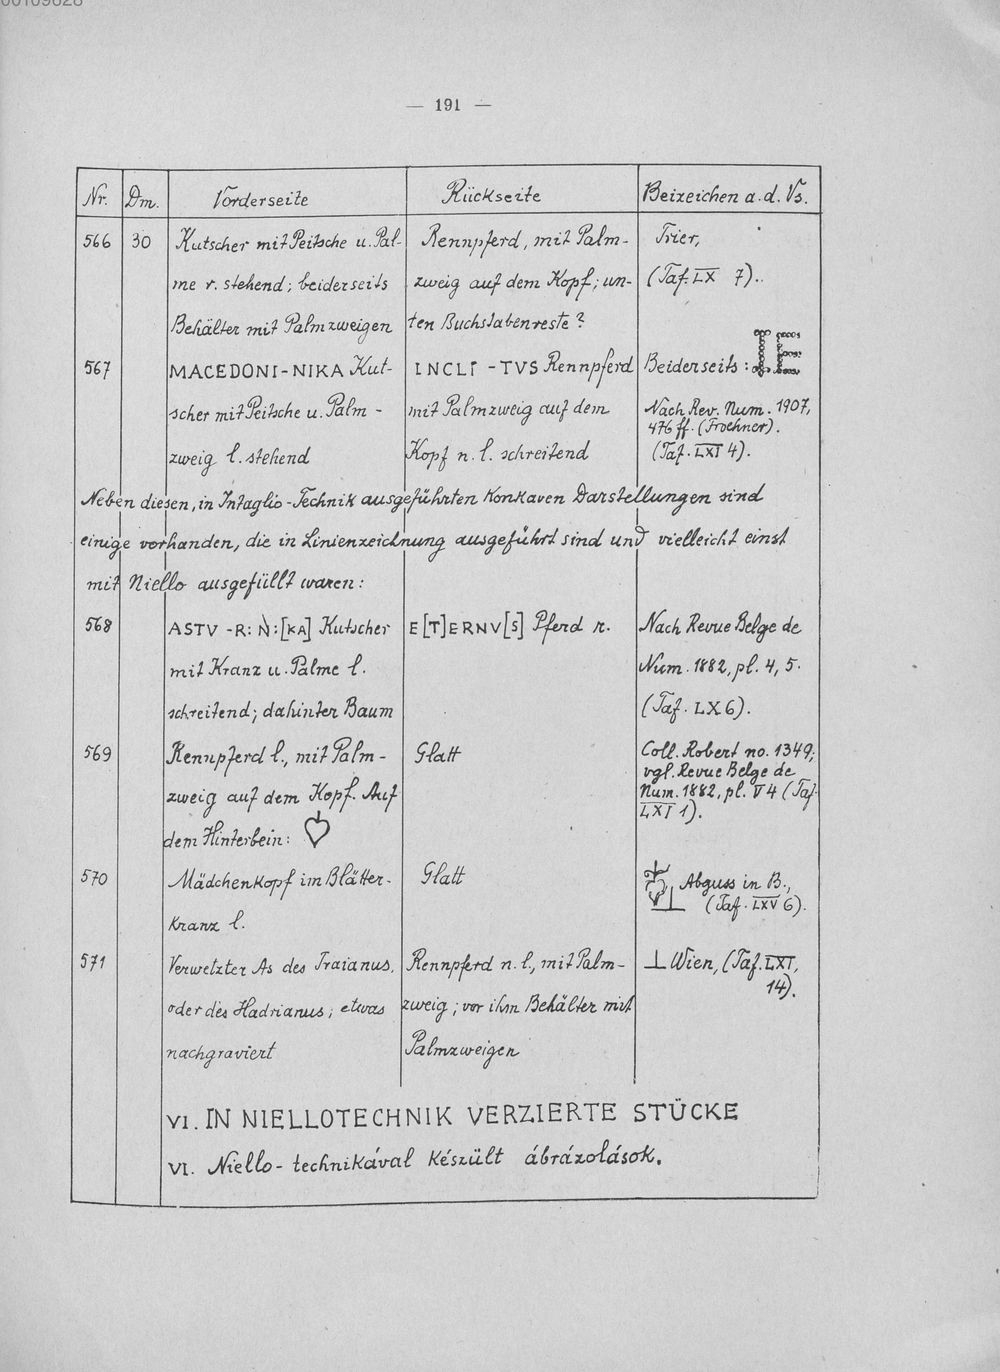 00109628
— 191 —
Nr. Dm. Vorderseite Rückseite Beizeichen a. d. Vs.
566 30 Kutscher mit Peitsche u. Pal- Rennpferd, mit Palm- Trier,
me r. stehend; beiderseits zweig auf dem Kopf; un- (Taf. LX 7).
Behälter mit Palmzweigen ten Buchstabenreste?
567 MACEDONI-NIKA Kut- INCLI-TVS Rennpferd Beiderseits: IE
scher mit Peitsche u. Palm- mit Palmzweig auf dem Nach Rev. Num. 1907,
476 ff. (Froehner).
zweig l. stehend Kopf n. l. schreitend (Taf. LXI 4).
Neben diesen, in Intaglio-Technik ausgeführten konkaven Darstellungen sind
einige vorhanden, die in Linienzeichnung ausgeführt sind und vielleicht einst
mit Niello ausgefüllt waren:
568 ASTV-R: N:[KA] Kutscher E[T]ERNV[S] Pferd r. Nach Revue Belge de
mit Kranz u. Palme l. Num. 1882, pl. 4, 5.
schreitend; dahinter Baum (Taf. LX 6).
569 Rennpferd l., mit Palm- Glatt Coll. Robert no. 1349;
vgl. Revue Belge de
zweig auf dem Kopf. Auf Num. 1882, pl. V 4 (Taf.
LXI 1).
dem Hinterbein:
570 Mädchenkopf im Blätter- Glatt Abguss in B.,
(Taf. LXV 6).
kranz l.
571 Verwetzter As des Traianus, Rennpferd n. l., mit Palm- ⊥ Wien, (Taf. LXI,
14).
oder des Hadrianus; etwas zweig; vor ihm Behälter mit
nachgraviert Palmzweigen
VI. IN NIELLOTECHNIK VERZIERTE STÜCKE
VI. Niello-technikával készült ábrázolások.